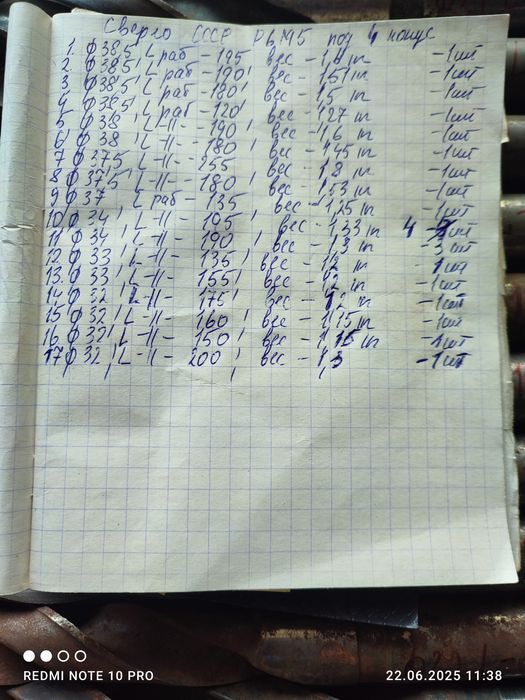 Сверло СССР Р6М5 под 4 конус
1. Ф 38,5, L раб - 195, вес - 1,4 кг - 1 шт
2. Ф 38,5, L раб - 190, вес - 1,51 кг - 1 шт
3. Ф 38,5, L раб - 180, вес - 1,5 кг - 1 шт
4. Ф 38,5, L раб - 120, вес - 1,27 кг - 1 шт
5. Ф 38, L -11- 190, вес - 1,6 кг - 1 шт
6. Ф 38, L -11- 180, вес - 1,45 кг - 1 шт
7. Ф 37,5, L -11- 255, вес - 1,8 кг - 1 шт
8. Ф 37,5, L -11- 180, вес - 1,53 кг - 1 шт
9. Ф 37, L раб - 135, вес - 1,25 кг - 1 шт
10. Ф 34, L -11- 195, вес - 1,33 кг 4 шт
11. Ф 34, L -11- 190, вес - 1,3 кг - 3 шт
12. Ф 33, L -11- 135, вес - кг - 1 шт
13. Ф 33, L -11- 155, вес - 1,2 кг - 1 шт
14. Ф 32, L -11- 175, вес - 1,2 кг - 1 шт
15. Ф 32, L -11- 160, вес - 1,15 кг - 1 шт
16. Ф 32, L -11- 150, вес - кг - 1 шт
17. Ф 32, L -11- 200, вес - 1,3 - 1 шт
REDMI NOTE 10 PRO
22.06.2025 11:38